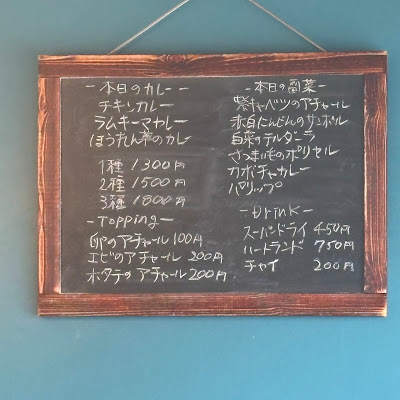 －本日のカレー－
チキンカレー
ラムキーマカレー
ほうれん草のカレー
1種 1300円
2種 1500円
3種 1800円
－Topping－
卵のアチャール 100円
エビのアチャール 200円
ホタテのアチャール 200円
－本日の副菜－
紫キャベツのアチャール
赤白にんじんのサンボル
白菜のテルダラ
さつまいものポリヤル
カボチャカレー
パリップ
－Drink－
スーパードライ 450円
ハートランド 750円
チャイ 200円